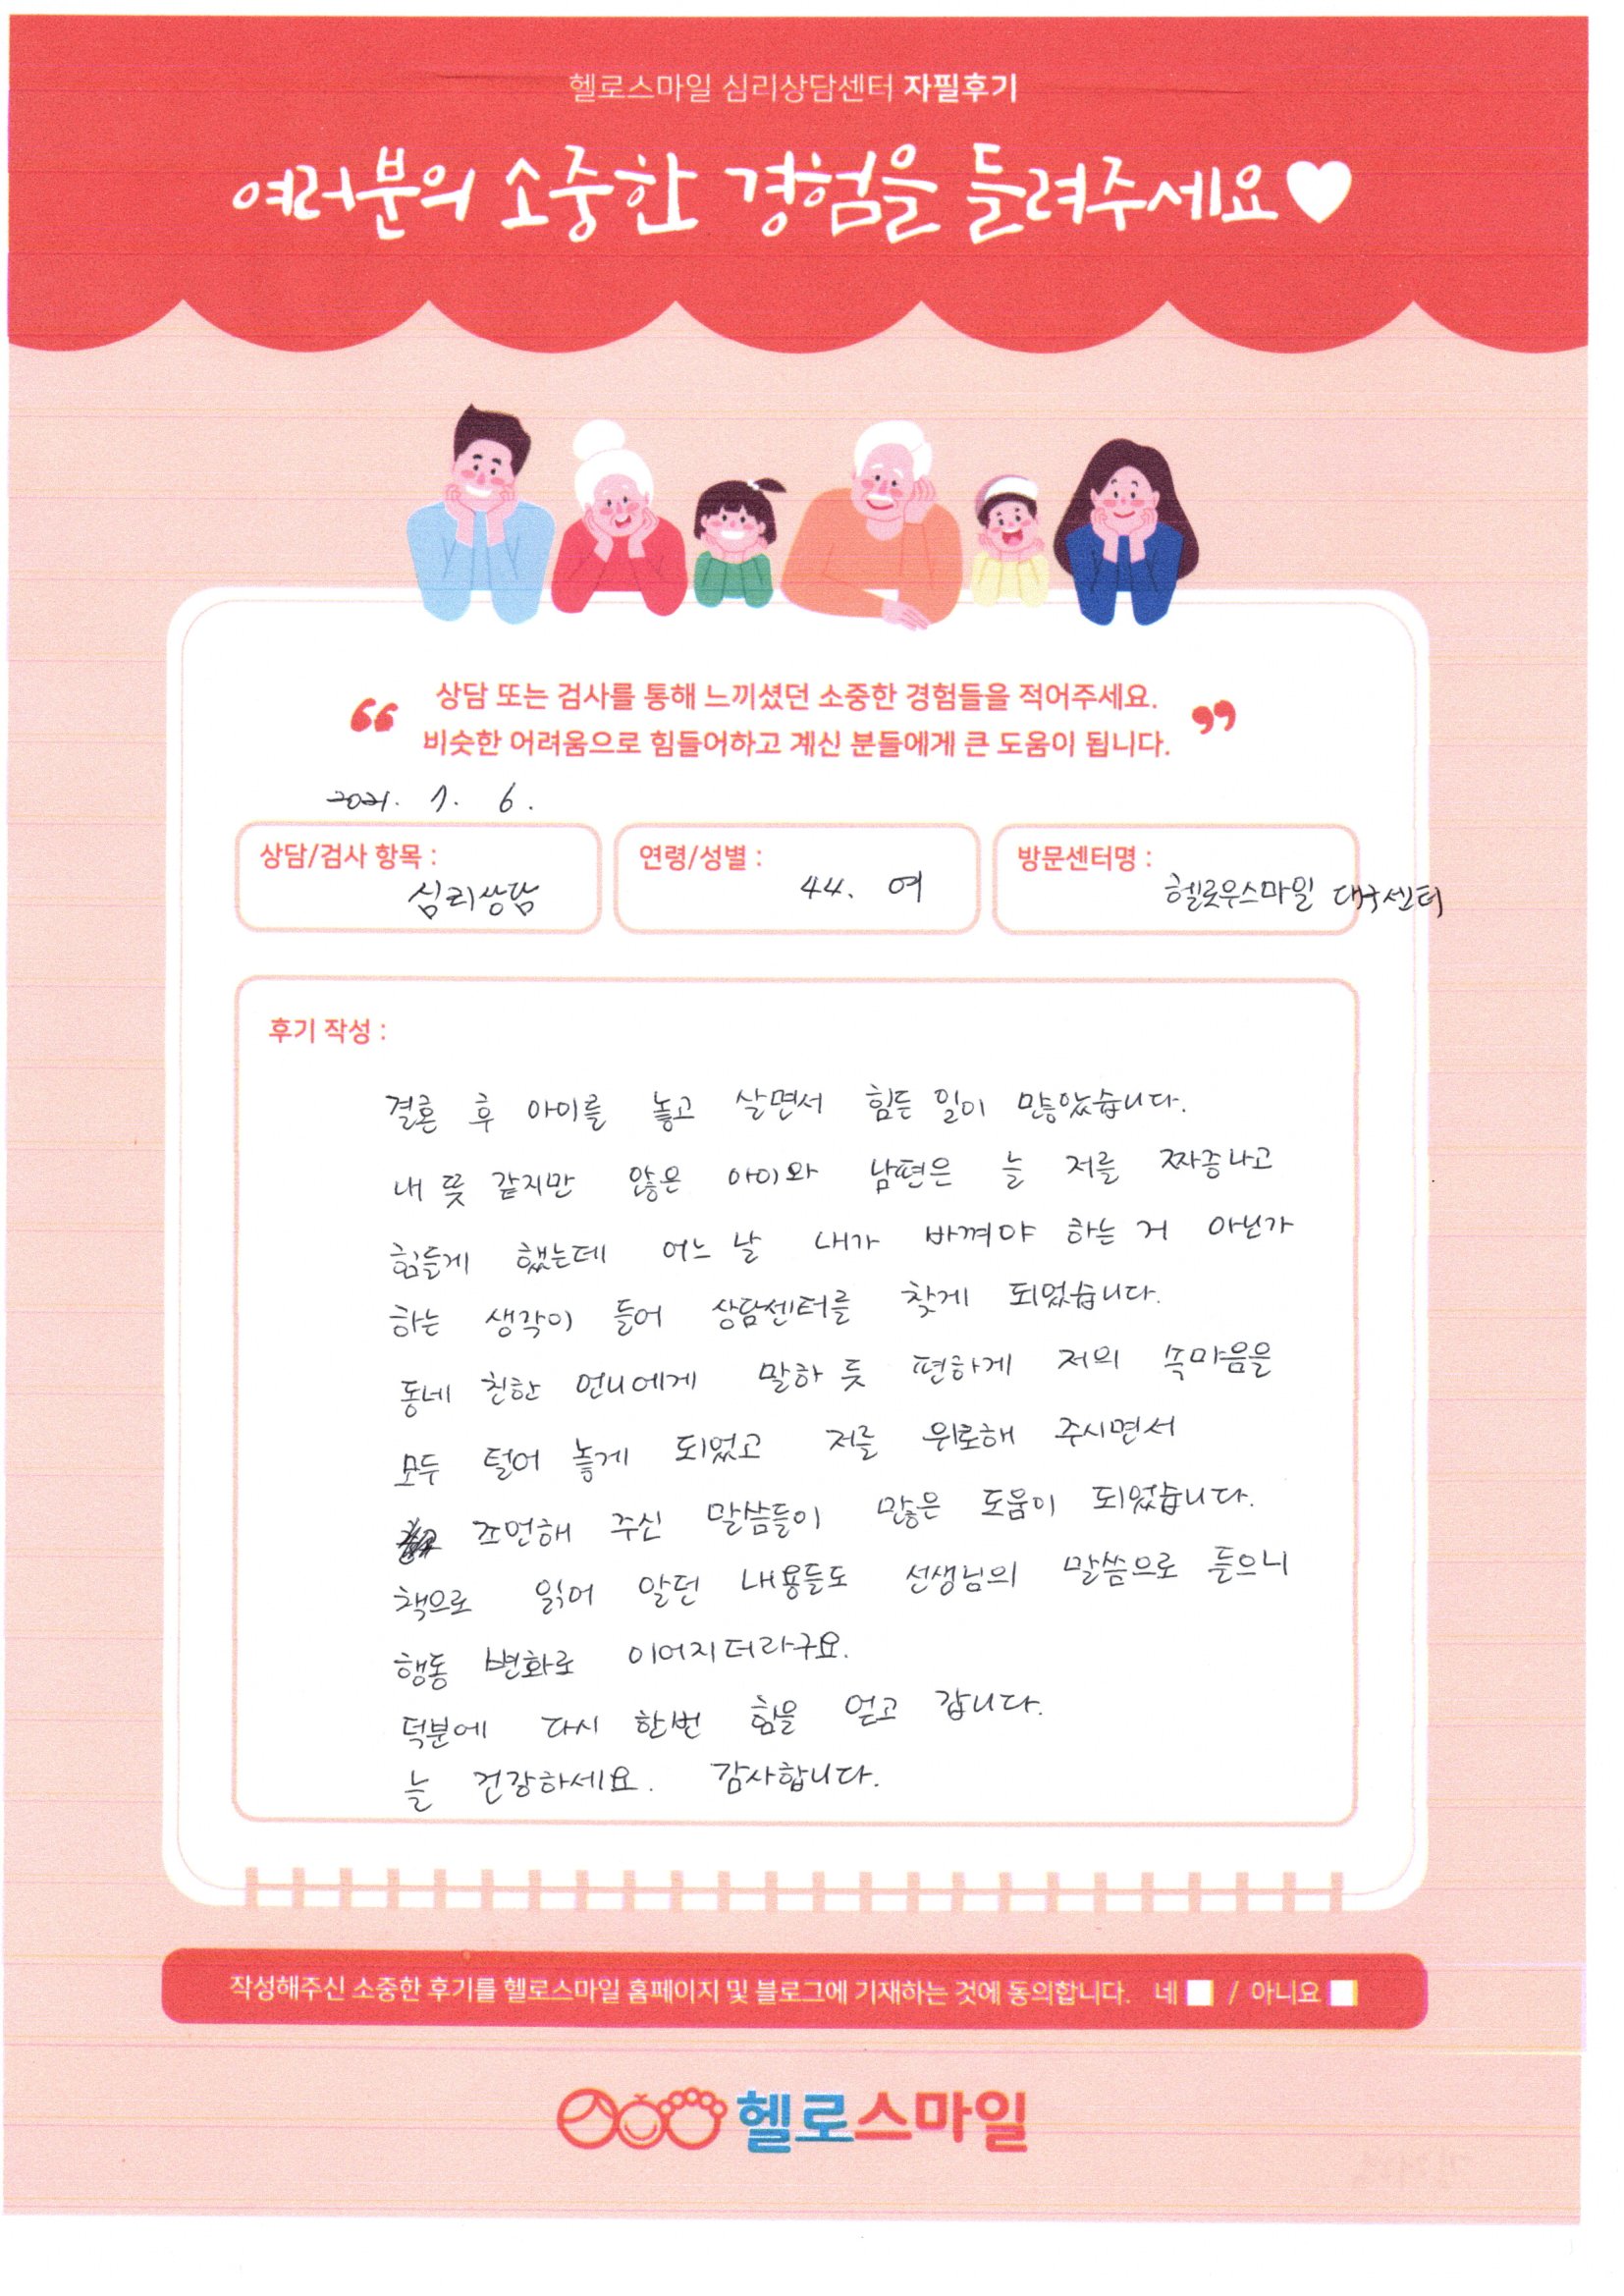 헬로스마일 심리상담센터 자필후기
여러분의 소중한 경험을 들려주세요♥
“ 상담 또는 검사를 통해 느끼셨던 소중한 경험들을 적어주세요. ”
비슷한 어려움으로 힘들어하고 계신 분들에게 큰 도움이 됩니다.
2021. 7. 6.
상담/검사 항목 :
심리상담
연령/성별 :
44. 여
방문센터명 :
헬로우스마일 대구센터
후기 작성 :
결혼 후 아이를 놓고 살면서 힘든 일이 많았습니다.
내 뜻 같지만 않은 아이와 남편은 늘 저를 짜증나고
힘들게 했는데 어느 날 내가 바껴야 하는 거 아닌가
하는 생각이 들어 상담센터를 찾게 되었습니다.
동네 친한 언니에게 말하 듯 편하게 저의 속마음을
모두 털어 놓게 되었고 저를 위로해 주시면서
조언해 주신 말씀들이 많은 도움이 되었습니다.
책으로 읽어 알던 내용들도 선생님의 말씀으로 들으니
행동 변화로 이어지더라구요.
덕분에 다시 한번 힘을 얻고 갑니다.
늘 건강하세요. 감사합니다.
작성해주신 소중한 후기를 헬로스마일 홈페이지 및 블로그에 기재하는 것에 동의합니다. 네 / 아니요
헬로스마일